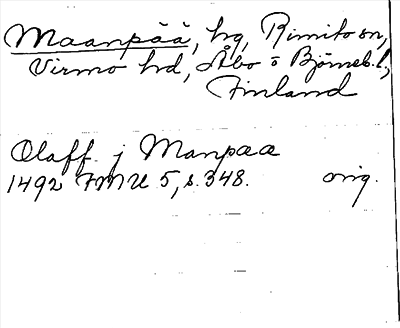 Maanpää, hg, Rimito sn,
Virmo hd, Åbo o Björneb. l.,
Finland
Olaff j Manpaa
1492 FMU 5, s. 348. orig.